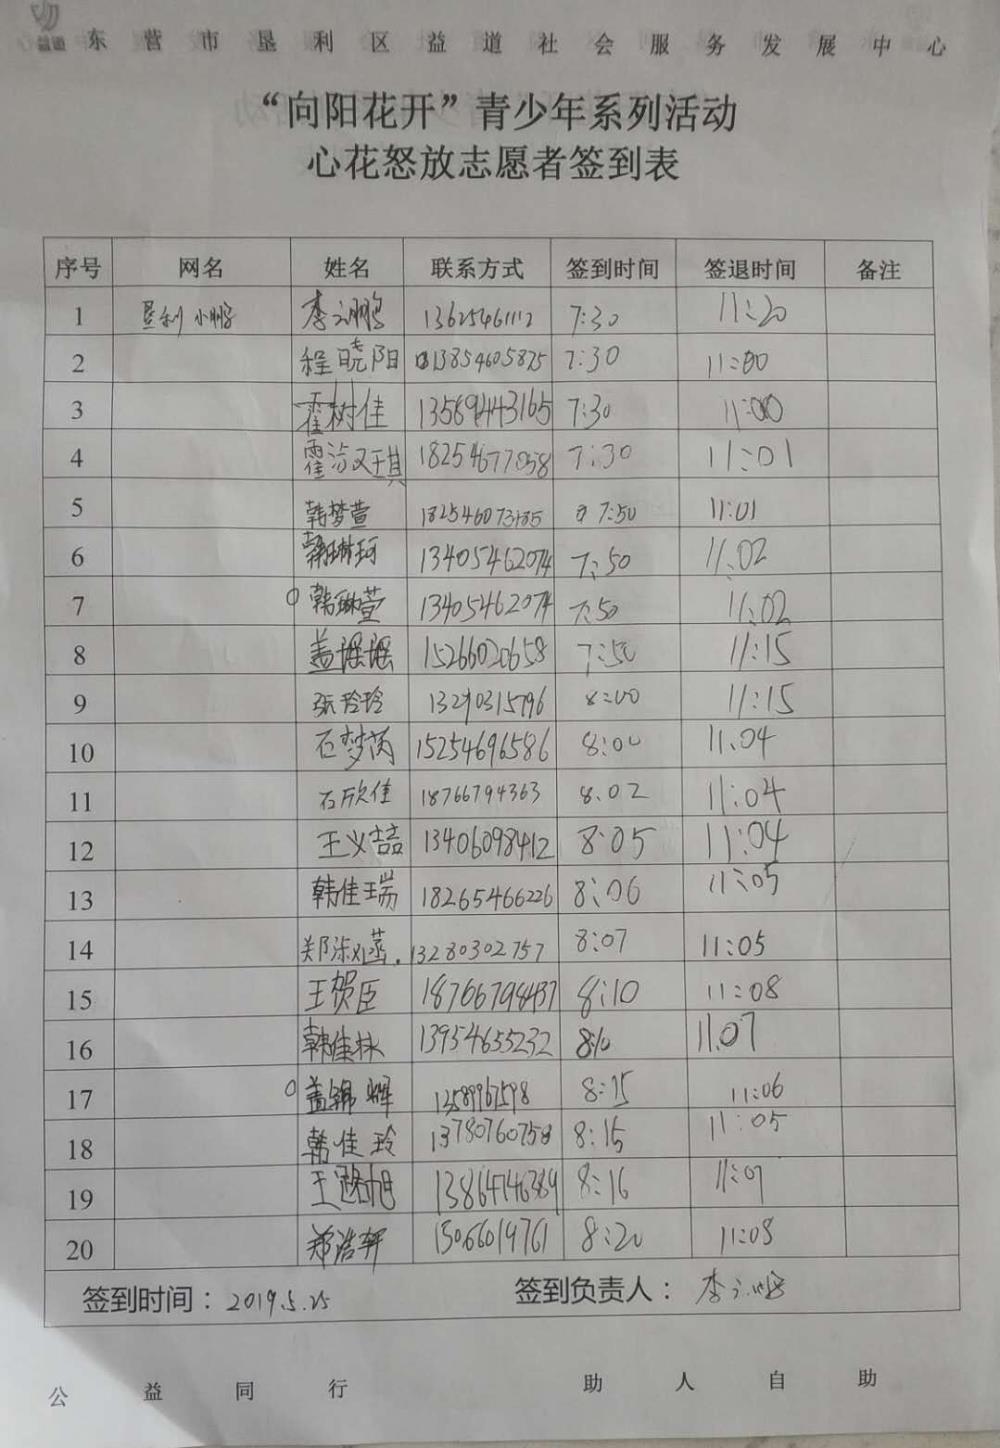 益道
东营市垦利区益道社会服务发展中心
“向阳花开”青少年系列活动
心花怒放志愿者签到表
序号 网名 姓名 联系方式 签到时间 签退时间 备注
1 垦利小鹏 13625461112 7:30 11:20
2 程晓阳 13854605875 7:30 11:00
3 霍树佳 13589443165 7:30 11:00
4 18254677058 7:30 11:01
5 韩梦萱 7:50 11:01
6 韩琳珂 13405462074 7:50 11:02
7 韩琳萱 13405462074 7:50 11:02
8 盖瑶瑶 15266020658 7:50 11:15
9 张玲玲 8:00 11:15
10 石梦芮 15254696586 8:00 11.04
11 石欣佳 18766794363 8.02 11:04
12 王义喆 13406098412 8:05 11:04
13 韩佳瑞 18265466226 8:06 11:05
14 13280302757 8:07 11:05
15 王贺臣 8:10 11:08
16 韩佳林 13954655232 8:10 11.07
17 盖锦辉 8:15 11:06
18 韩佳玲 13780760758 8:15 11:05
19 8:16 11:07
20 郑浩轩 15066019761 8:20 11:08
签到时间：2019.5.25 签到负责人：
公益同行 助人自助